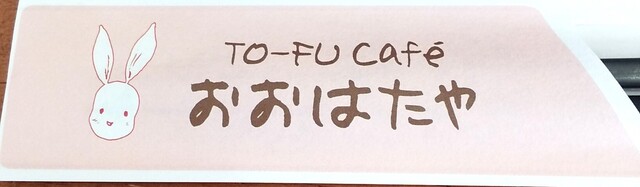 TO-FU Café
おおはたや